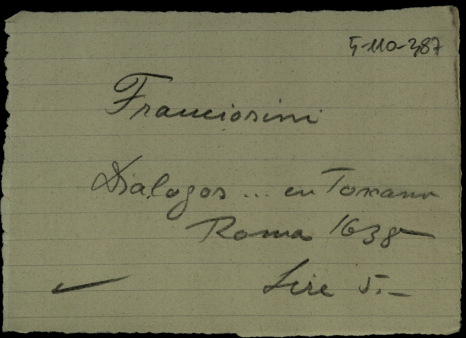 5-110-387
Franciosini
Dialogos ... en Toscano
Roma 1638
Lire 5.-